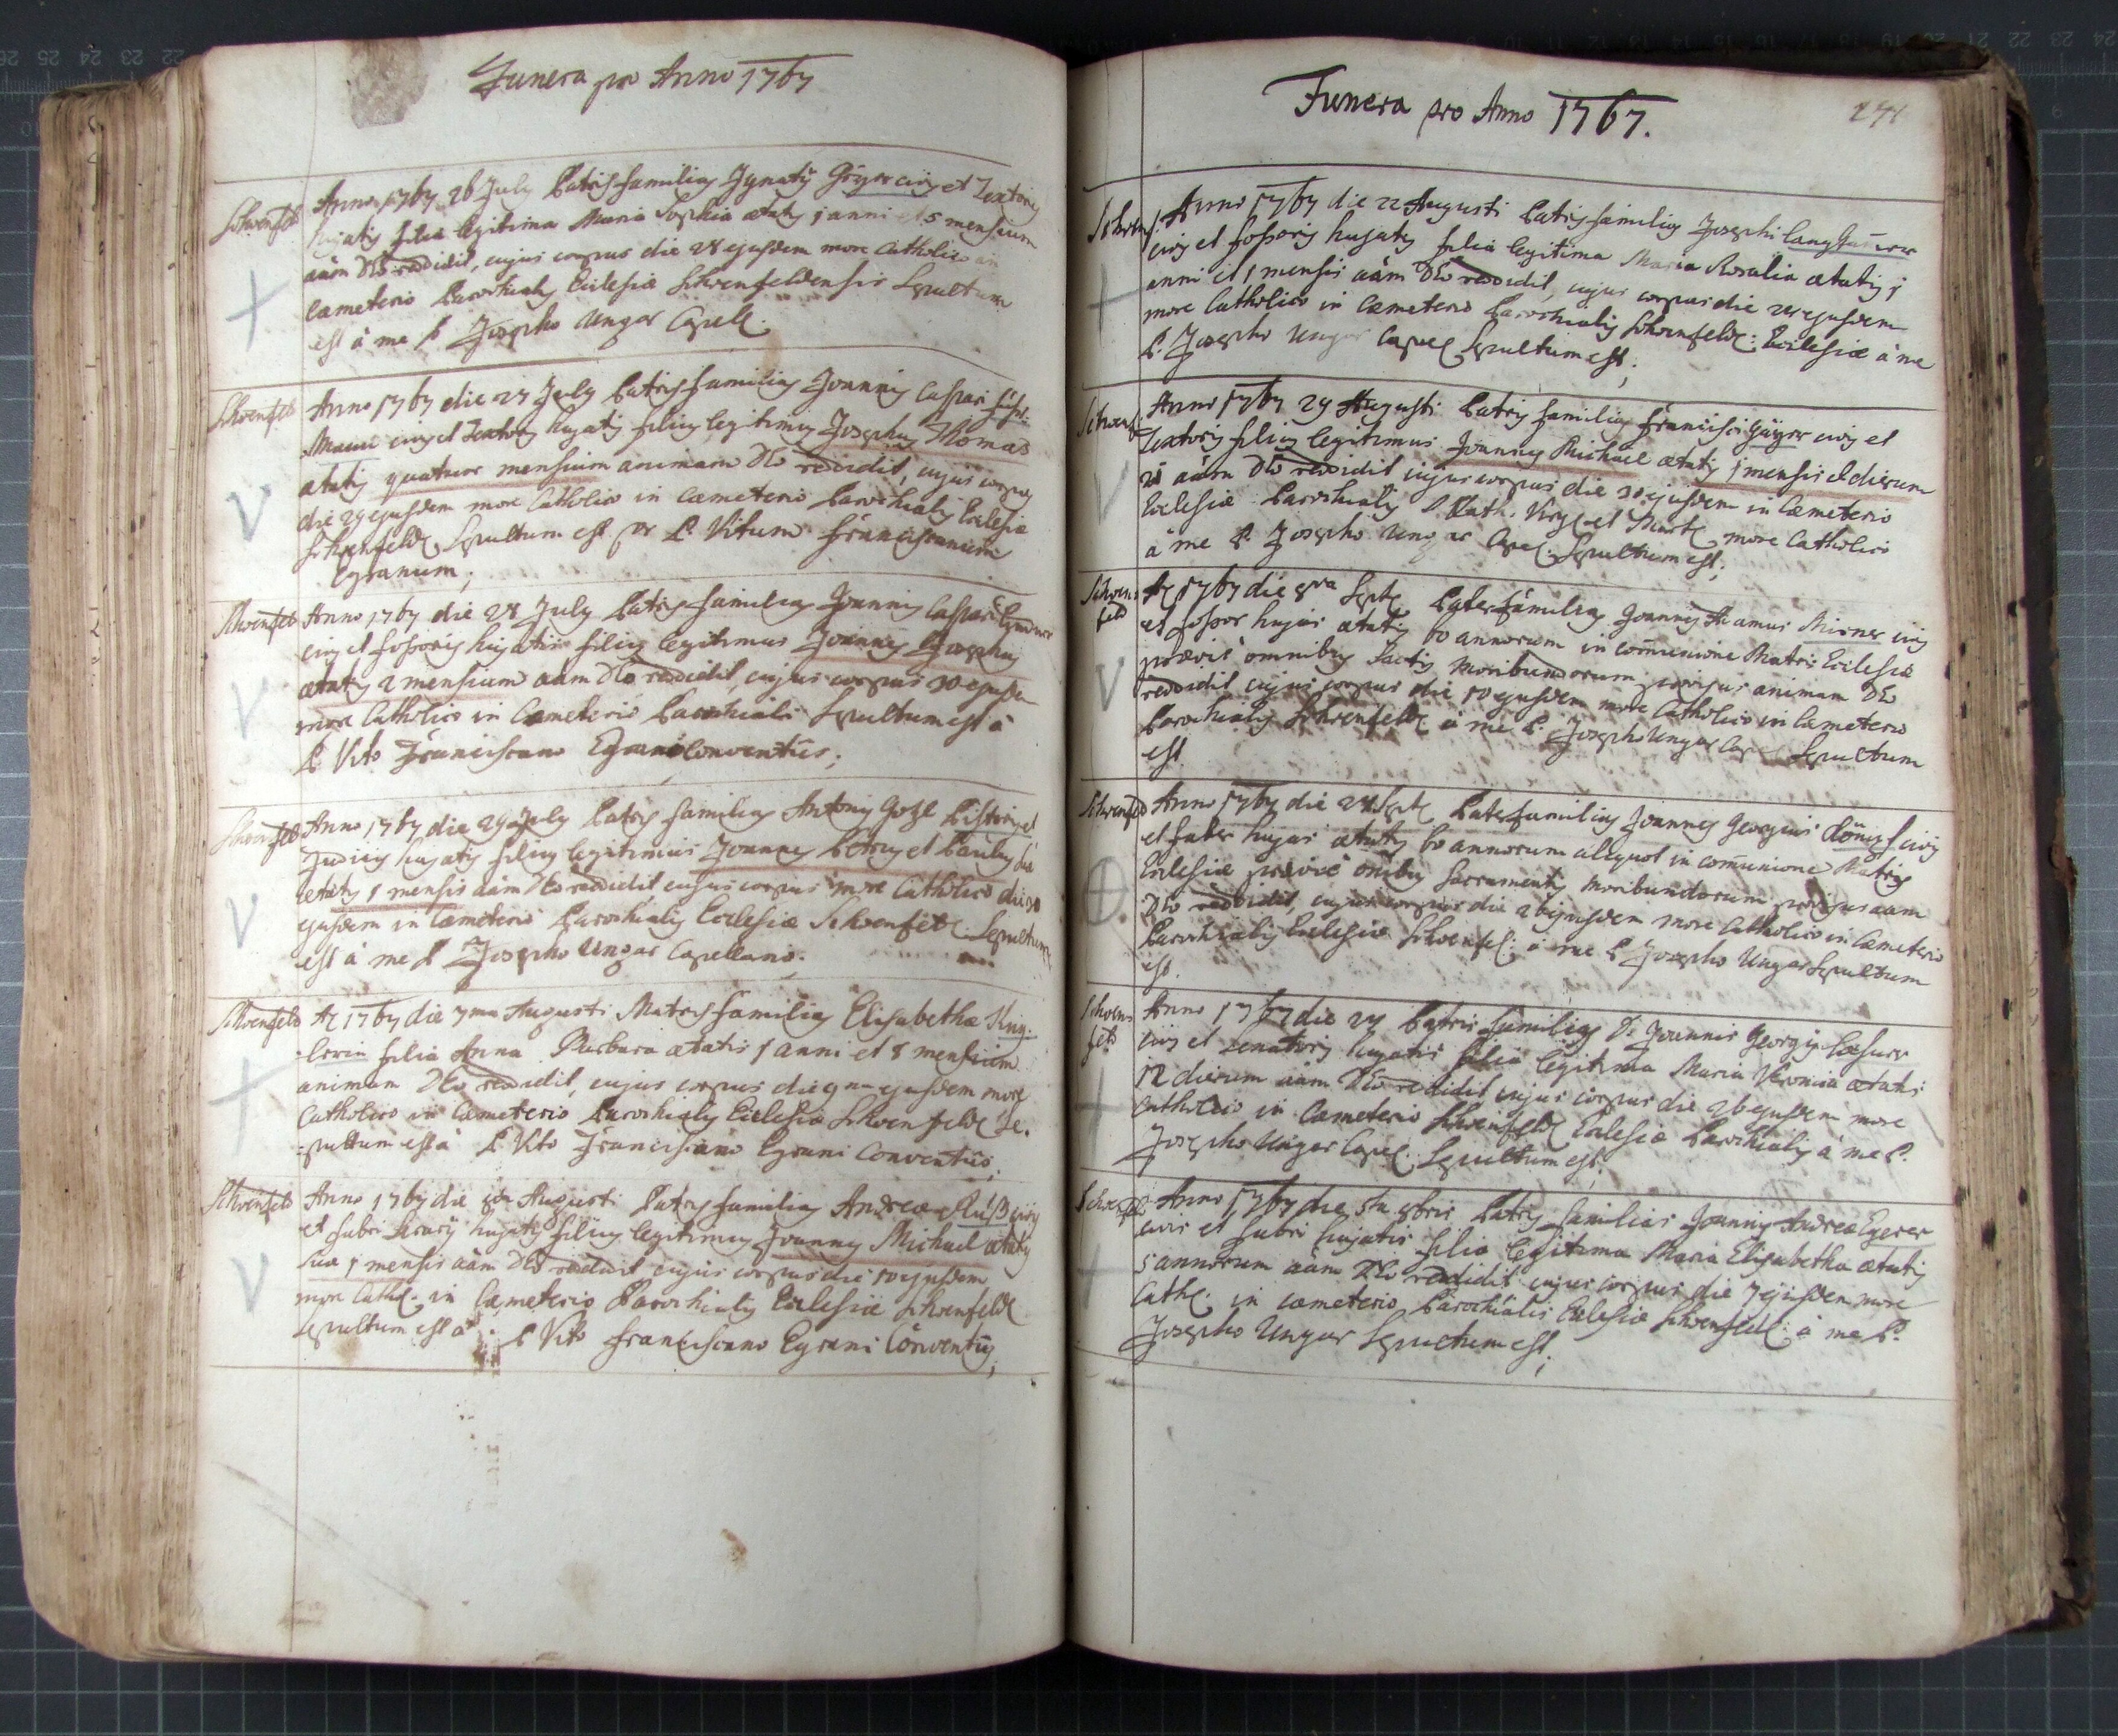 Funera pro Anno 1767
Schoenfeld Anno 1767 26 July Patris familias Ignatÿ Geÿer civis et Textoris
hujatis filia legitima Maria Sophia ætatis 1 anni et 5 mensium
aām Dēo reddidit, cujus corpus die 28 ejusdem more Catholico in
Cæmeterio Parochialis Ecclesiæ Schoenfeldensis Sepultum
est à me P. Josepho Ungar Capell.
Schoenfeld Anno 1767 die 27 July Patris familias Joannis Caspari
civis et Textoris hujatis filius legitimus Josephus Thomas
ætatis quatuor mensium animam Dēo reddidit, cujus corpus
die 29 ejusdem more Catholico in Cæmeterio Parochialis Ecclesiæ
Schoenfeld Sepultum est per P. Vitum Franciscanum
Egranum;
Schoenfeld Anno 1767 die 28 July Patris familias Joannis Caspari
civis et fossoris hujatis filius legitimus Joannes Josephus
ætatis 2 mensium aām Dēo reddidit, cujus corpus 30 ejusdem
more Catholico in Cæmeterio Parochiali Sepultum est à
P. Vito Franciscano Egrani Conventûs;
Schoenfeld Anno 1767 die 29 July Patris familias Antonÿ Gozl Pistoris et
Judicis hujatis filius legitimus Joannes Petrus et Paulus suæ
ætatis 1 mensis aām Dēo reddidit cujus corpus more Catholico die 30
ejusdem in Cæmeterio Parochialis Ecclesiæ Schoenfeld: Sepultum
est à me P. Josepho Ungar Capellano.
Schoenfeld Aō 1767 die 7ma Augusti Matris familias Elisabethæ
filia Anna Barbara ætatis 1 anni et 8 mensium
animam Dēo reddidit, cujus corpus die 9na ejusdem more
Catholico in Cæmeterio Parochialis Ecclesiæ Schoenfeld Se-
-pultum est à P. Vito Franciscano Egrani Conventûs;
Schoenfeld Anno 1767 die 8va Augusti Patris familias Andreæ Ruß civis
et fabri hujatis filius legitimus Joannes Michael ætatis
suæ 1 mensis aām Dēo reddidit cujus corpus die 10 ejusdem
more Cath: in Cæmeterio Parochialis Ecclesiæ Schoenfeld
Sepultum est à P. Vito Franciscano Egrani Conventûs;
Funera pro Anno 1767.
271
Anno 1767 die 22 Augusti Patris familias Josephi
civis et fossoris hujatis filia legitima Maria Rosalia ætatis 1
anni et 1 mensis aām Dēo reddidit, cujus corpus die 24 ejusdem
more Catholico in Cæmeterio Parochialis Schoenfeld: Ecclesiæ à me
P. Josepho Ungar Capel: Sepultum est;
Anno 1767 29 Augusti Patris familias Francisci Geÿer civis et
Textoris filius legitimus Joannes Michael ætatis 1 mensis et dierum
21 aām Dēo reddidit cujus corpus die 30 ejusdem in Cæmeterio
Ecclesiæ Parochialis S. Cath: Virg: et Mart: more Catholico
à me P. Josepho Ungar Capel: Sepultum est;
Schoen-
feld Aō 1767 die 8va Septe Pater familias Joannes Adamus Misner civis
et fossor hujus ætatis 60 annorum in com̄unione Matris Ecclesiæ
prævie omnibus Sactis moribundorum provisus animam Dēo
reddidit cujus corpus die 10 ejusdem more Catholico in Cæmeterio
Parochialis Schoenfeld: à me P. Josepho Ungar Cap Sepultum
est.
Schoenfeld Anno 1767 die 24 Septe Pater familias Joannes Georgius civis
et faber hujus ætatis 60 annorum aliquot in com̄unione Matris
Ecclesiæ prævie om̄ibus Sacramentis Moribundorum provisus aām
Dēo reddidit, cujus corpus die 26 ejusdem more Catholico in Cæmeterio
Parochialis Ecclesiæ Schoenfel: à me P. Josepho Ungar Sepultum
est.
Schoen-
feld Anno 1767 die 24 Patris familias D: Joannis Georgÿ
civis et Senatoris hujatis filia legitima Maria Veronica ætatis
12 dierum aām Dēo reddidit cujus corpus die 26 ejusdem more
Catholico in Cæmeterio Schoenfeld: Ecclesiæ Parochialis à me P.
Josepho Ungar Capel: Sepultum est.
Anno 1767 die 5ta 8bris Patris familias Joannis Andreæ Egerer
civis et fabri hujatis filia legitima Maria Elisabetha ætatis
5 annorum aām Dēo reddidit cujus corpus die 7 ejusdem more
Cath: in cæmeterio Parochialis Ecclesiæ Schoenfeld: à me P.
Josepho Ungar Sepultum est;